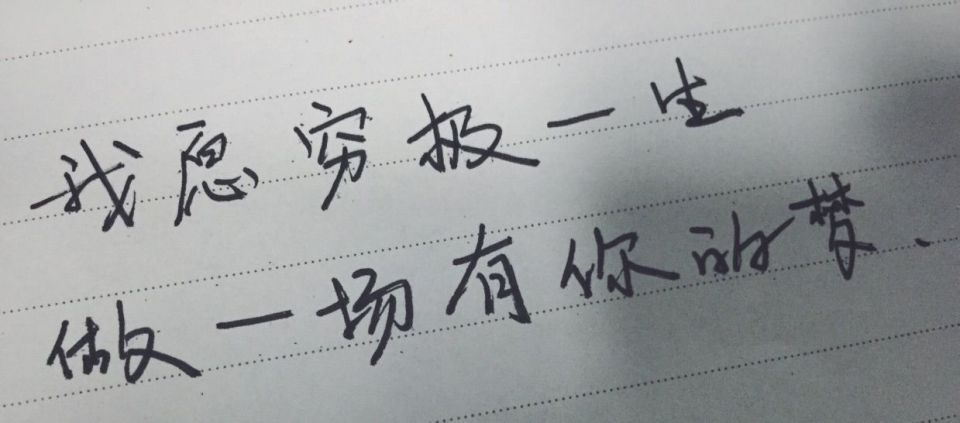 我愿穷极一生
做一场有你的梦、